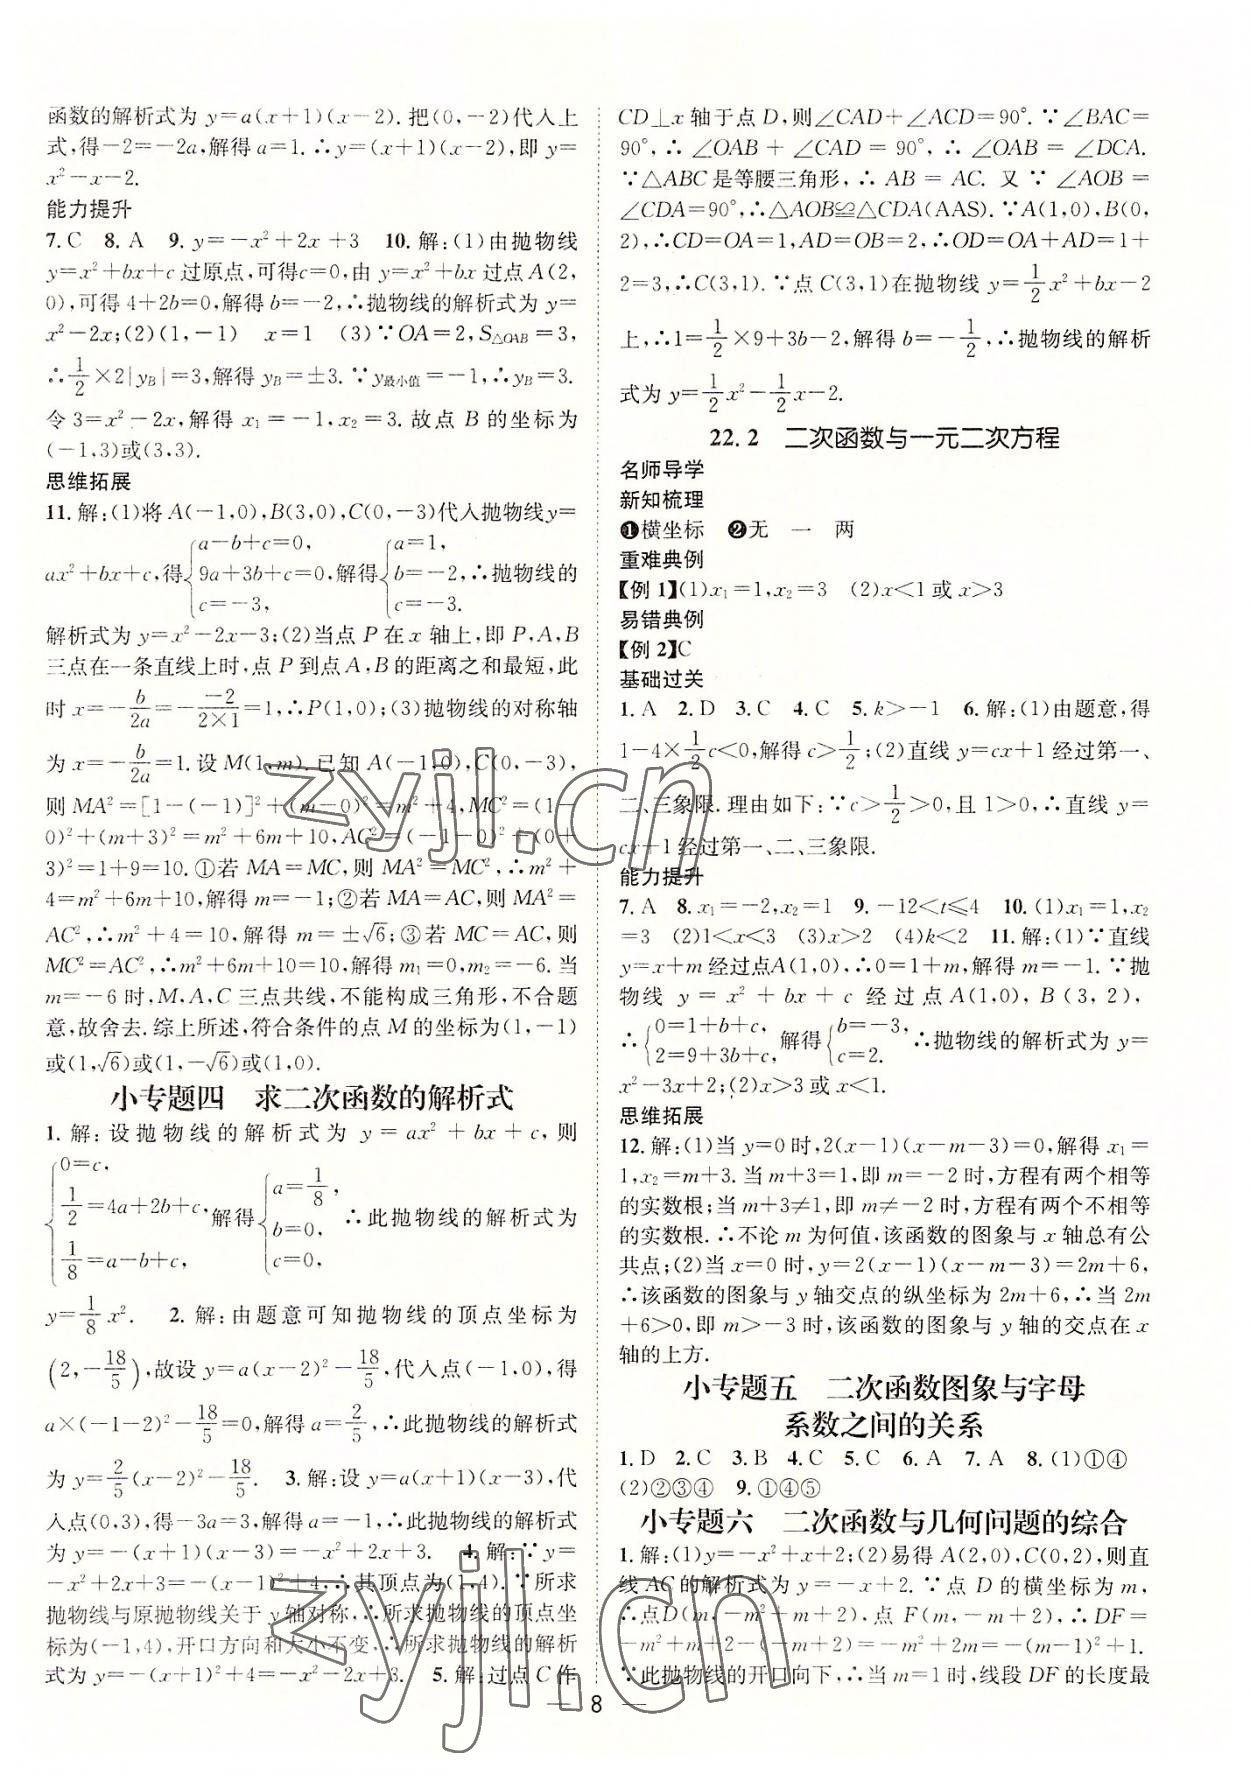 函数的解析式为 y=a(x+1)(x-2). 把(0,-2)代入上
式,得-2=-2a,解得 a=1. ∴y=(x+1)(x-2),即 y=
x²-x-2.
能力提升
7. C 8. A 9. y=-x²+2x+3 10. 解:(1)由抛物线
y=x²+bx+c 过原点,可得c=0,由 y=x²+bx 过点 A(2,
0),可得 4+2b=0,解得 b=-2,∴抛物线的解析式为 y=
x²-2x;(2)(1,-1) x=1 (3)∵OA=2,S△OAB=3,
∴1/2×2|yB|=3,解得 yB=±3. ∵y最小值=-1,∴yB=3.
令 3=x²-2x,解得 x₁=-1,x₂=3. 故点 B 的坐标为
(-1,3)或(3,3).
思维拓展
11. 解:(1)将 A(-1,0),B(3,0),C(0,-3)代入抛物线y=
ax²+bx+c,得{a-b+c=0, 9a+3b+c=0, c=-3, 解得{a=1, b=-2, c=-3. ∴抛物线的
解析式为 y=x²-2x-3;(2)当点 P 在 x 轴上,即 P,A,B
三点在一条直线上时,点 P 到点 A,B 的距离之和最短,此
时 x=-b/2a=-(-2)/(2×1)=1,∴P(1,0);(3)抛物线的对称轴
为 x=-b/2a=1. 设 M(1,m),已知 A(-1,0),C(0,-3),
则 MA²=[1-(-1)]²+(m-0)²=m²+4,MC²=(1-
0)²+(m+3)²=m²+6m+10,AC²=(-1-0)²+(0+
3)²=1+9=10. ①若 MA=MC,则 MA²=MC²,∴m²+
4=m²+6m+10,解得 m=-1;②若 MA=AC,则 MA²=
AC²,∴m²+4=10,解得 m=±√6;③若 MC=AC,则
MC²=AC²,∴m²+6m+10=10,解得 m₁=0,m₂=-6. 当
m=-6 时,M,A,C 三点共线,不能构成三角形,不合题
意,故舍去. 综上所述,符合条件的点 M 的坐标为(1,-1)
或(1,√6)或(1,-√6)或(1,0).
小专题四 求二次函数的解析式
1. 解:设抛物线的解析式为 y=ax²+bx+c,则
{0=c, 1/2=4a+2b+c, 1/8=a-b+c, 解得{a=1/8, b=0, c=0, ∴此抛物线的解析式为
y=1/8x². 2. 解:由题意可知抛物线的顶点坐标为
(2,-18/5),故设 y=a(x-2)²-18/5,代入点(-1,0),得
a×(-1-2)²-18/5=0,解得 a=2/5,∴此抛物线的解析式
为 y=2/5(x-2)²-18/5. 3. 解:设 y=a(x+1)(x-3),代
入点(0,3),得-3a=3,解得 a=-1,∴此抛物线的解析式
为 y=-(x+1)(x-3)=-x²+2x+3. 4. 解:∵y=
-x²+2x+3=-(x-1)²+4,∴其顶点为(1,4). ∵所求
抛物线与原抛物线关于 y 轴对称,∴所求抛物线的顶点坐
标为(-1,4),开口方向和大小不变,∴所求抛物线的解析
式为 y=-(x+1)²+4=-x²-2x+3. 5. 解:过点 C 作
CD⊥x 轴于点 D,则∠CAD+∠ACD=90°. ∵∠BAC=
90°,∴∠OAB+∠CAD=90°,∴∠OAB=∠DCA.
∵△ABC 是等腰三角形,∴AB=AC. 又∵∠AOB=
∠CDA=90°,∴△AOB≌△CDA(AAS). ∵A(1,0),B(0,
2),∴CD=OA=1,AD=OB=2,∴OD=OA+AD=1+
2=3,∴C(3,1). ∵点 C(3,1)在抛物线 y=1/2x²+bx-2
上,∴1=1/2×9+3b-2,解得 b=-1/2,∴抛物线的解析
式为 y=1/2x²-1/2x-2.
22.2 二次函数与一元二次方程
名师导学
新知梳理
❶横坐标 ❷无 一 两
重难典例
【例 1】(1)x₁=1,x₂=3 (2)x<1 或 x>3
易错典例
【例 2】C
基础过关
1. A 2. D 3. C 4. C 5. k>-1 6. 解:(1)由题意,得
1-4×1/2c<0,解得 c>1/2;(2)直线 y=cx+1 经过第一、
二、三象限. 理由如下:∵c>1/2>0,且 1>0,∴直线 y=
cx+1 经过第一、二、三象限.
能力提升
7. A 8. x₁=-2,x₂=1 9. -12<t≤4 10. (1)x₁=1,x₂
=3 (2)1<x<3 (3)x>2 (4)k<2 11. 解:(1)∵直线
y=x+m 经过点A(1,0),∴0=1+m,解得 m=-1. ∵抛
物线 y=x²+bx+c 经过点 A(1,0),B(3,2),
∴{0=1+b+c, 2=9+3b+c, 解得{b=-3, c=2. ∴抛物线的解析式为 y=
x²-3x+2;(2)x>3 或 x<1.
思维拓展
12. 解:(1)当 y=0 时,2(x-1)(x-m-3)=0,解得 x₁=
1,x₂=m+3. 当 m+3=1,即 m=-2 时,方程有两个相等
的实数根;当 m+3≠1,即 m≠-2 时,方程有两个不相等
的实数根. ∴不论 m 为何值,该函数的图象与 x 轴总有公
共点;(2)当 x=0 时,y=2(x-1)(x-m-3)=2m+6,
∴该函数的图象与 y 轴交点的纵坐标为 2m+6,∴当 2m
+6>0,即 m>-3 时,该函数的图象与 y 轴的交点在 x
轴的上方.
小专题五 二次函数图象与字母
系数之间的关系
1. D 2. C 3. B 4. C 5. C 6. A 7. A 8. (1)①④
(2)②③④ 9. ①④⑤
小专题六 二次函数与几何问题的综合
1. 解:(1)y=-x²+x+2;(2)易得 A(2,0),C(0,2),则直
线 AC 的解析式为 y=-x+2. ∵点 D 的横坐标为 m,
∴点D(m,-m²+m+2),点 F(m,-m+2),∴DF=
-m²+m+2-(-m+2)=-m²+2m=-(m-1)²+1.
∵此抛物线的开口向下,∴当 m=1 时,线段 DF 的长度最
— 8 —
zyjl.cn
zyjl.cn